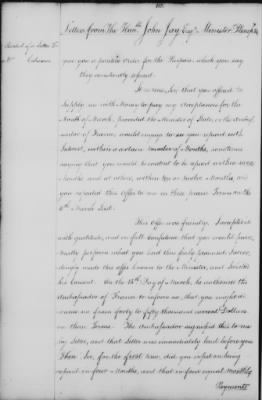 Letters from The Hon. John Jay Esq. Minister Plenipo.
Recital of a Letter To
Mr. Cabarrus
give you a positive Order for the Purpose, which you say
they constantly refused.
It is true, Sir, that you offered to
supply me with Money to pay my Acceptances for the
Month of March, provided the Minister of State, or the Ambas-
sador of France, would engage to see you repaid with
Interest, within a certain number of Months, sometimes
saying that you would be content to be repaid within
Months and at others, within ten or twelve Months, and
you repeated this Offer to me in these precise Terms on the
March last.
This Offer was friendly. I accepted it
with gratitude, and in full confidence that you would punc-
tually perform what you had thus freely promised. Accor-
dingly made this offer known to the Minister, and solicited
his Consent. On the Day of March, he authorised the
Ambassador of France to inform me, that you might ad-
vance me from forty to fifty thousand current Dollars
on these Terms. The Ambassador signified this to me
by Letter, and that Letter was immediately laid before you
Then, Sir, for the first time, did you insist on being
repaid in four Months, and that in four equal Monthly
Payments